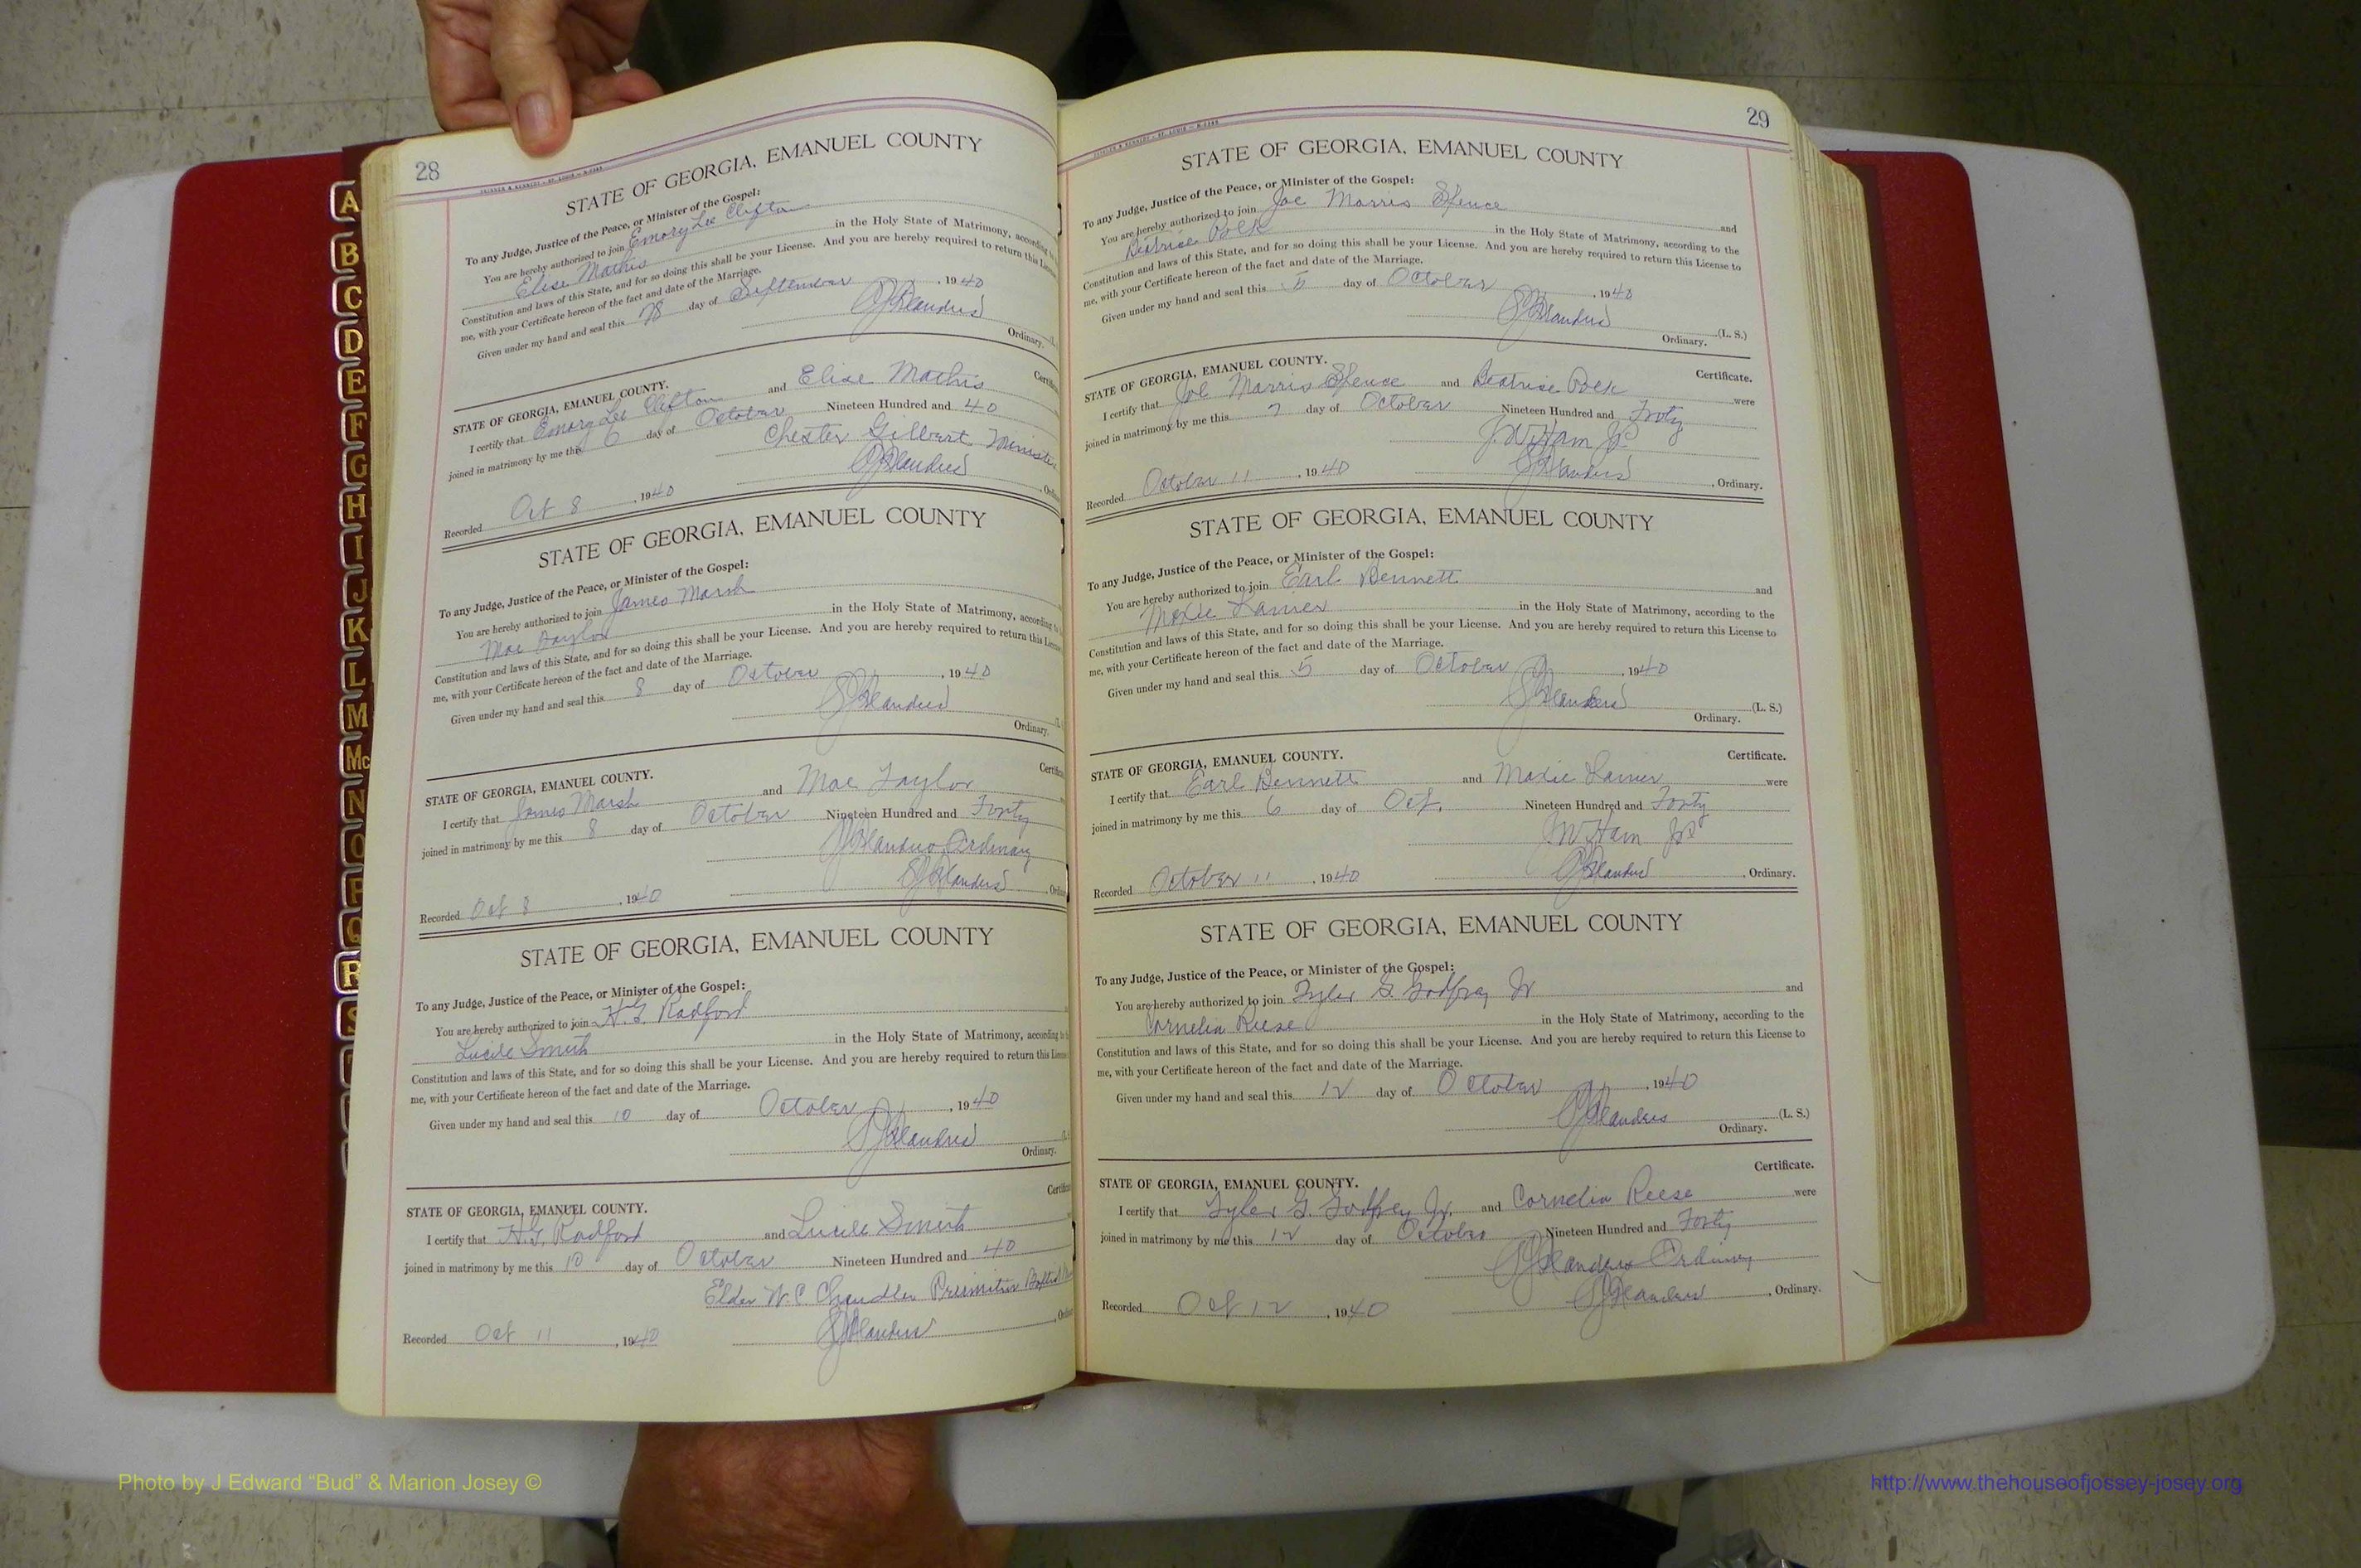 28
STATE OF GEORGIA, EMANUEL COUNTY
To any Judge, Justice of the Peace, or Minister of the Gospel:
You are hereby authorized to join Emory Lee Clifton
Elise Mathis in the Holy State of Matrimony, according
Constitution and laws of this State, and for so doing this shall be your License. And you are hereby required to return this License
me, with your Certificate hereon of the fact and date of the Marriage.
Given under my hand and seal this 28 day of September, 1940
Ordinary.
STATE OF GEORGIA, EMANUEL COUNTY.
I certify that Emory Lee Clifton and Elise Mathis
joined in matrimony by me this 6 day of October Nineteen Hundred and 40
Chester Gilbert Minister
Recorded Oct 8, 1940
STATE OF GEORGIA, EMANUEL COUNTY
To any Judge, Justice of the Peace, or Minister of the Gospel:
You are hereby authorized to join James Marsh
Mae Taylor in the Holy State of Matrimony, according
Constitution and laws of this State, and for so doing this shall be your License. And you are hereby required to return this License
me, with your Certificate hereon of the fact and date of the Marriage.
Given under my hand and seal this 8 day of October, 1940
Ordinary.
STATE OF GEORGIA, EMANUEL COUNTY.
I certify that James Marsh and Mae Taylor
joined in matrimony by me this 8 day of October Nineteen Hundred and Forty
Ordinary
Recorded Oct 8, 1940
STATE OF GEORGIA, EMANUEL COUNTY
To any Judge, Justice of the Peace, or Minister of the Gospel:
You are hereby authorized to join H.G. Radford
Lucile Smith in the Holy State of Matrimony, according
Constitution and laws of this State, and for so doing this shall be your License. And you are hereby required to return this License
me, with your Certificate hereon of the fact and date of the Marriage.
Given under my hand and seal this 10 day of October, 1940
Ordinary.
STATE OF GEORGIA, EMANUEL COUNTY.
I certify that H.G. Radford and Lucile Smith
joined in matrimony by me this 10 day of October Nineteen Hundred and 40
Elder W.C. Chandler Primitive Baptist
Recorded Oct 11, 1940
29
STATE OF GEORGIA, EMANUEL COUNTY
To any Judge, Justice of the Peace, or Minister of the Gospel:
You are hereby authorized to join Joe Morris Spence and
Beatrice Polk in the Holy State of Matrimony, according to the
Constitution and laws of this State, and for so doing this shall be your License. And you are hereby required to return this License to
me, with your Certificate hereon of the fact and date of the Marriage.
Given under my hand and seal this 5 day of October, 1940
(L. S.)
Ordinary.
STATE OF GEORGIA, EMANUEL COUNTY. Certificate.
I certify that Joe Morris Spence and Beatrice Polk were
joined in matrimony by me this 7 day of October Nineteen Hundred and Forty
J.W. Ham JP
Recorded October 11, 1940 Ordinary.
STATE OF GEORGIA, EMANUEL COUNTY
To any Judge, Justice of the Peace, or Minister of the Gospel:
You are hereby authorized to join Earl Bennett and
Moxie Lanier in the Holy State of Matrimony, according to the
Constitution and laws of this State, and for so doing this shall be your License. And you are hereby required to return this License to
me, with your Certificate hereon of the fact and date of the Marriage.
Given under my hand and seal this 5 day of October, 1940
(L. S.)
Ordinary.
STATE OF GEORGIA, EMANUEL COUNTY. Certificate.
I certify that Earl Bennett and Moxie Lanier were
joined in matrimony by me this 6 day of Oct. Nineteen Hundred and Forty
J.W. Ham JP
Recorded October 11, 1940 Ordinary.
STATE OF GEORGIA, EMANUEL COUNTY
To any Judge, Justice of the Peace, or Minister of the Gospel:
You are hereby authorized to join Tyler G. Godfrey Jr and
Cornelia Reese in the Holy State of Matrimony, according to the
Constitution and laws of this State, and for so doing this shall be your License. And you are hereby required to return this License to
me, with your Certificate hereon of the fact and date of the Marriage.
Given under my hand and seal this 12 day of October, 1940
(L. S.)
Ordinary.
Certificate.
STATE OF GEORGIA, EMANUEL COUNTY.
I certify that Tyler G. Godfrey Jr. and Cornelia Reese were
joined in matrimony by me this 12 day of October Nineteen Hundred and Forty
Ordinary
Recorded Oct 12, 1940 Ordinary.
A
B
C
D
E
F
G
H
I
J
K
L
M
Mc
N
O
P
Q
R
S
Photo by J Edward “Bud” & Marion Josey ©
http://www.thehouseofjossey-josey.org